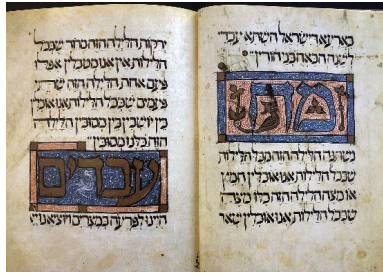 בארעא דישראל השתא עבדי
לשנה הבאה בני חורין
מה
נשתנה הלילה הזה מכל הלילות
שבכל הלילות אנו אוכלין חמץ
או מצה הלילה הזה כולו מצה
שבכל הלילות אנו אוכלין שאר
ירקות הלילה הזה מרור שבכל
הלילות אין אנו מטבלין אפילו
פעם אחת הלילה הזה שתי
פעמים שבכל הלילות אנו אוכלין
בין יושבין בין מסובין הלילה
הזה כלנו מסובין
עבדים
היינו לפרעה במצרים ויוציאנו